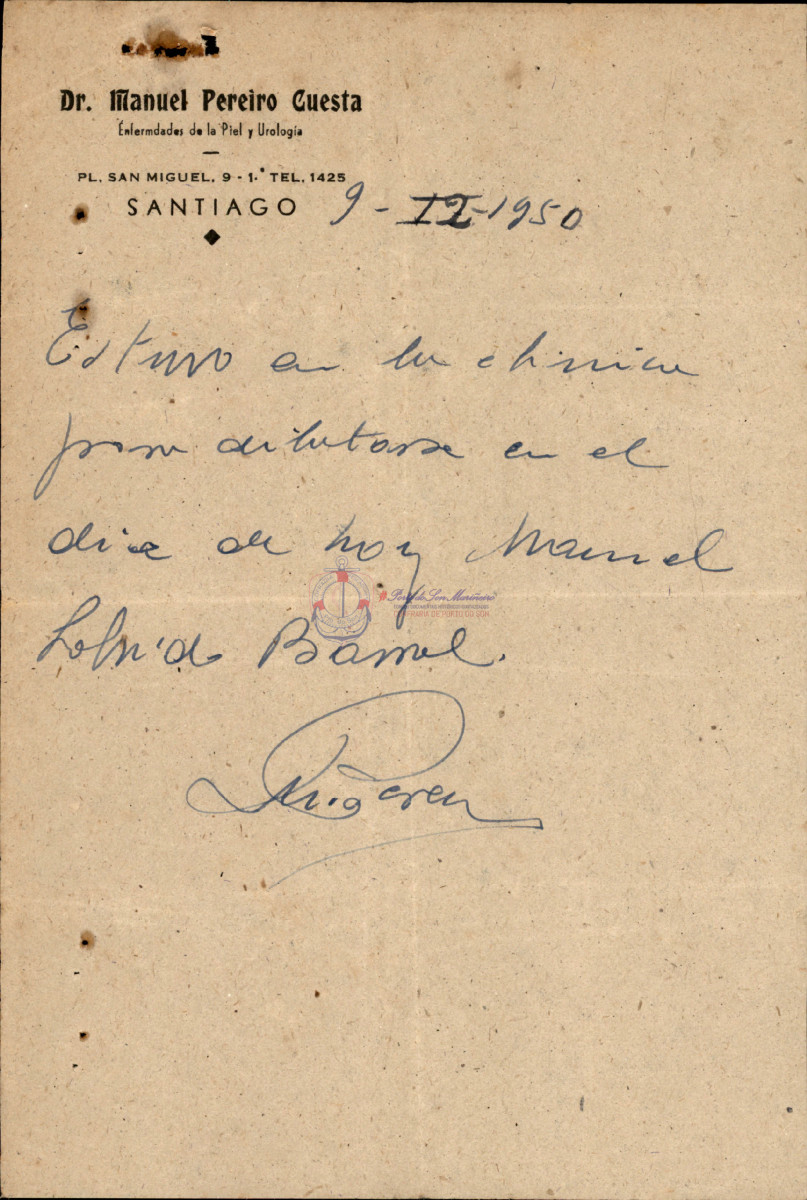 Dr. Manuel Pereiro Cuesta
Enfermdades de la Piel y Urología
PL. SAN MIGUEL, 9 - 1.° TEL. 1425
SANTIAGO
9 - II - 1950
Estuvo en la clinica
para dilatarse en el
dia de hoy Manuel
Barral.
Porto do Son Mariñeiro